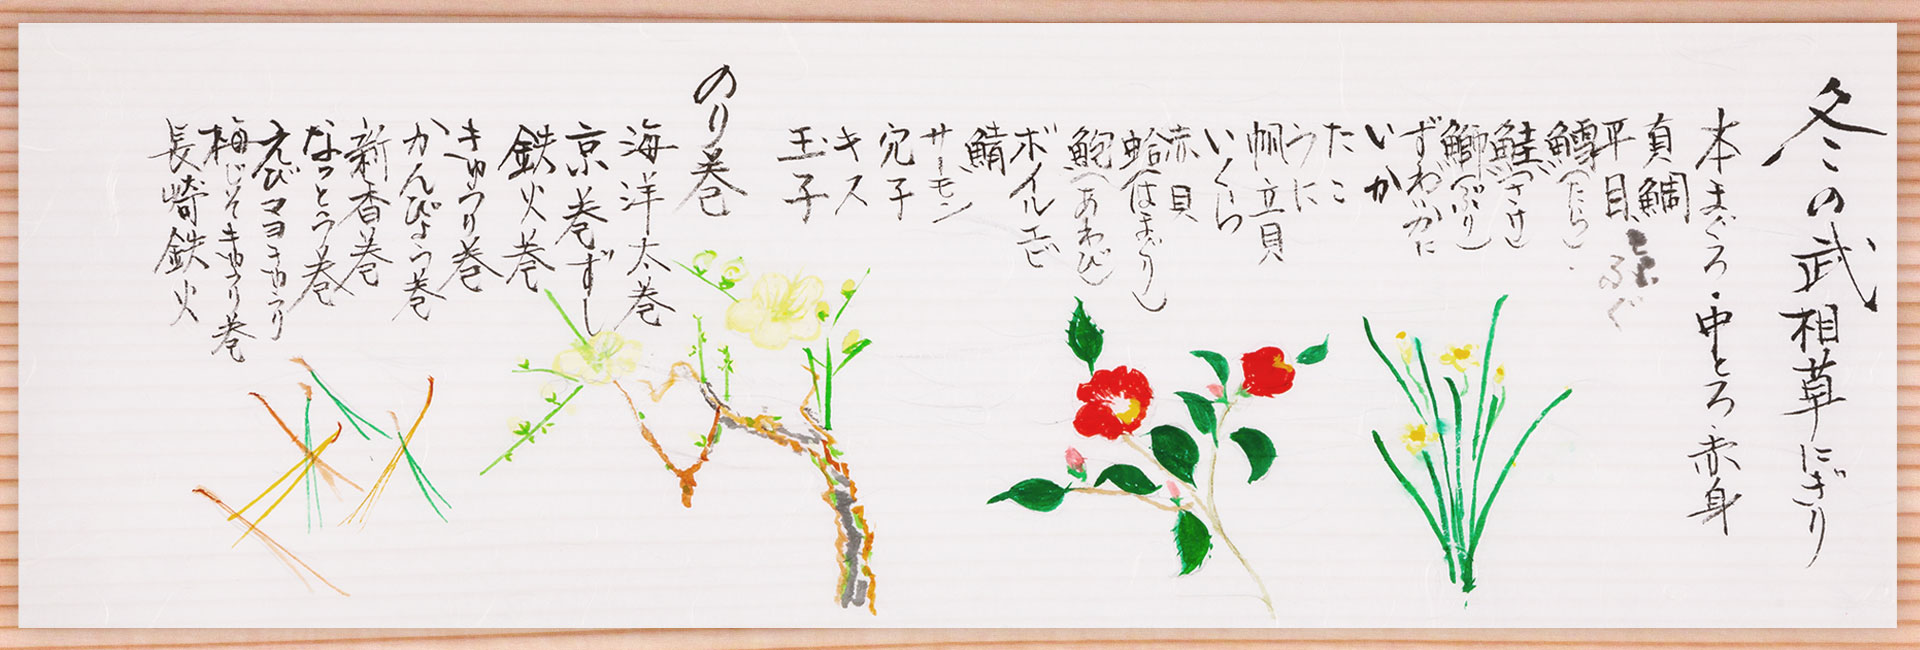 冬の武相草にぎり
本まぐろ・中とろ・赤身
真鯛
平目、
ふぐ
鱈(たら)
鮭(さけ)
鰤(ぶり)
ずわいかに
いか
たこ
うに
帆立貝
いくら
赤貝
蛤(はまぐり)
鮑(あわび)
ボイルエビ
鯖
サーモン
穴子
キス
玉子
のり巻
海洋太巻
京巻ずし
鉄火巻
きゅうり巻
かんぴょう巻
新香巻
なっとう巻
えびマヨきゅうり
梅じそきゅうり巻
長崎鉄火